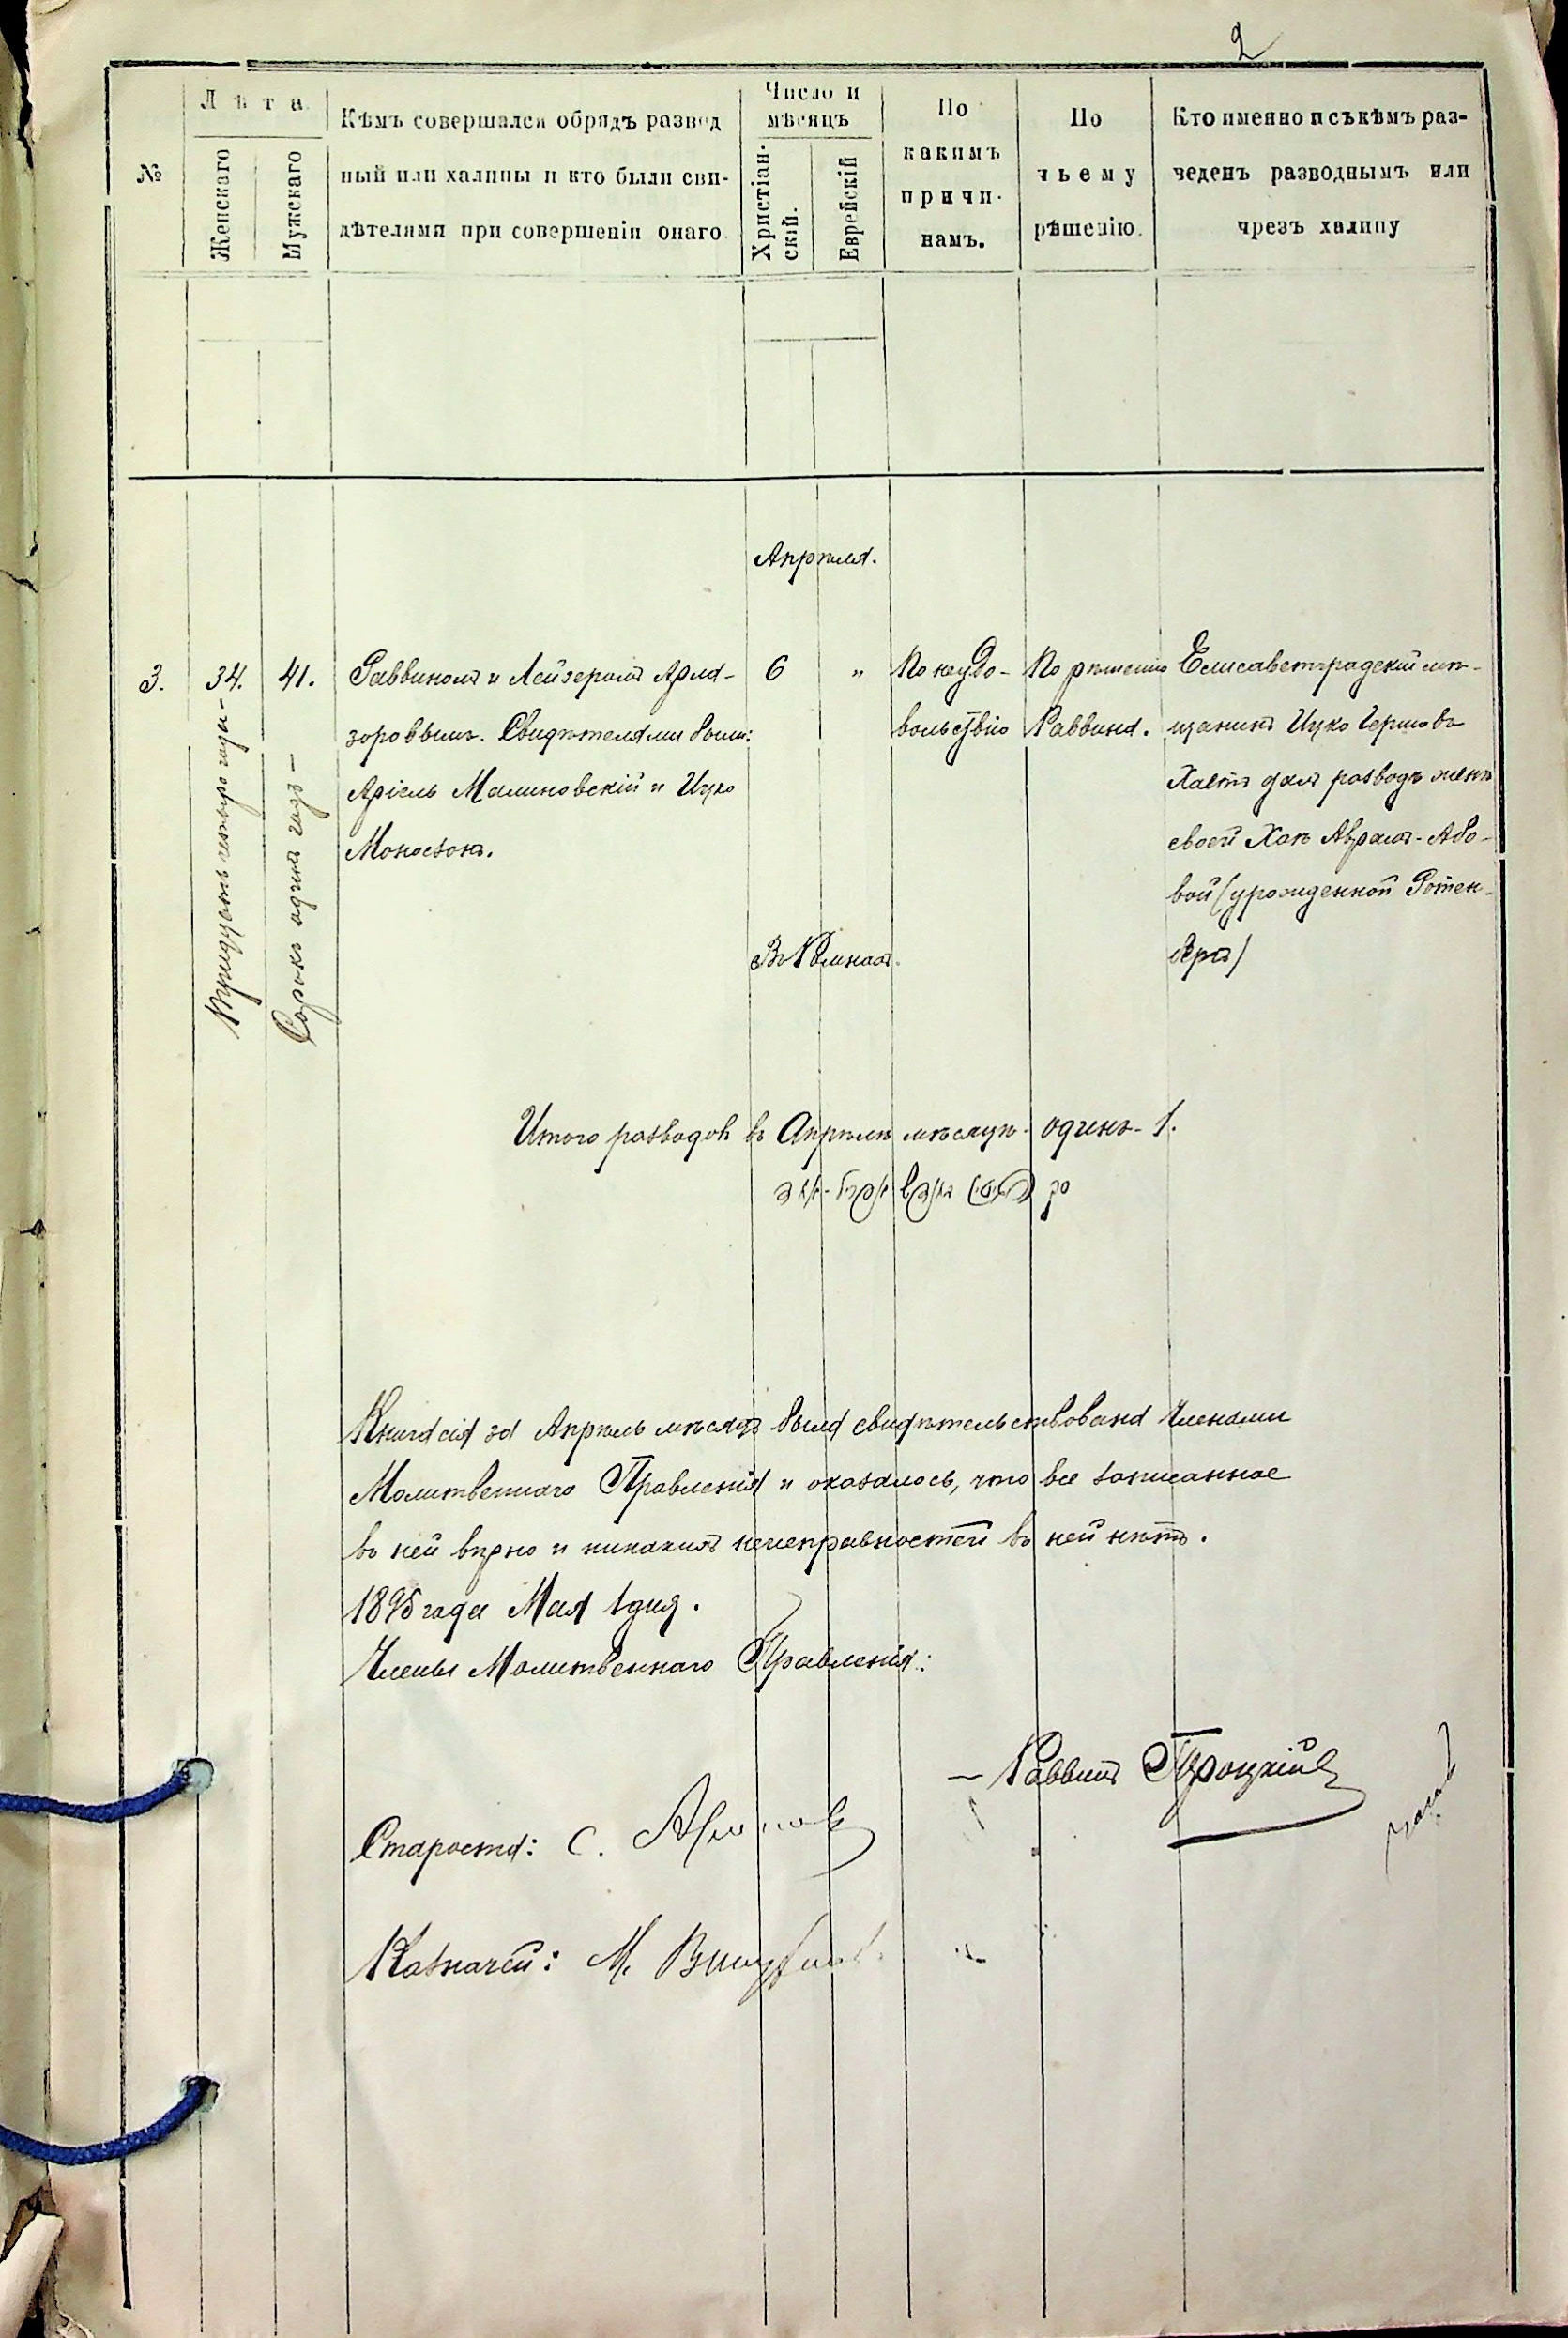 2
№
Лѣта
Женскаго
Мужскаго
Кѣмъ совершался обрядъ развод
ный или халицы и кто были сви-
дѣтелями при совершеніи онаго.
Число и
мѣсяцъ
Христіан-
скій.
Еврейскій
По
какимъ
причи-
намъ.
По
чьему
рѣшенію.
Кто именно и съ кѣмъ раз-
веденъ разводнымъ или
чрезъ халицу
Апрѣля.
3.
34.
Тридцать четыре года-
41.
Сорокъ одинъ годъ-
Раввиномъ и Лейзеромъ
Свидѣтелями были:
Аріель Малиновскій и Ицко
6
"
По неудо-
вольствію
По рѣшенію
Раввина.
Елисаветградскій мѣ-
щанинъ Ицко Герш
далъ разводъ женѣ
своей Ханѣ Аврам-Або-
вой (урожденной Ротен-
бергъ)
Итого разводовъ въ Апрѣлѣ мѣсяцѣ - одинъ - 1.
Книга сія за Апрѣль мѣсяцъ была свидѣтельствована Членами
Молитвеннаго Правленія и оказалось, что все записанное
въ ней вѣрно и никакихъ неисправностей въ ней нѣтъ.
года Мая 1 дня.
Члены Молитвеннаго Правленія:
Раввинъ Троцкій
Староста: С.
Казначей: М.